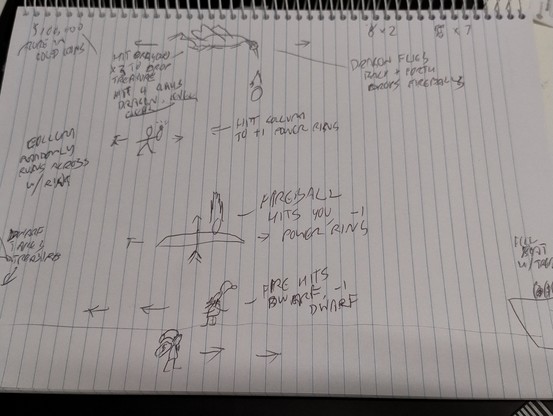 $100,000
HIT DRAGON
x3 TO DROP
TREASURE
HIT 4
DRAGON
x 2
x 7
DRAGON FLIES
BACK & FORTH
DROPS FIREBALLS
GOLLUM
RANDOMLY
RUNS ACROSS
W/ RING
HIT GOLLUM
TO +1 POWER RING
FIREBALL
HITS YOU, -1
POWER RING
DWARF
TAKES
TREASURE
FIRE HITS
DWARF, -1
DWARF